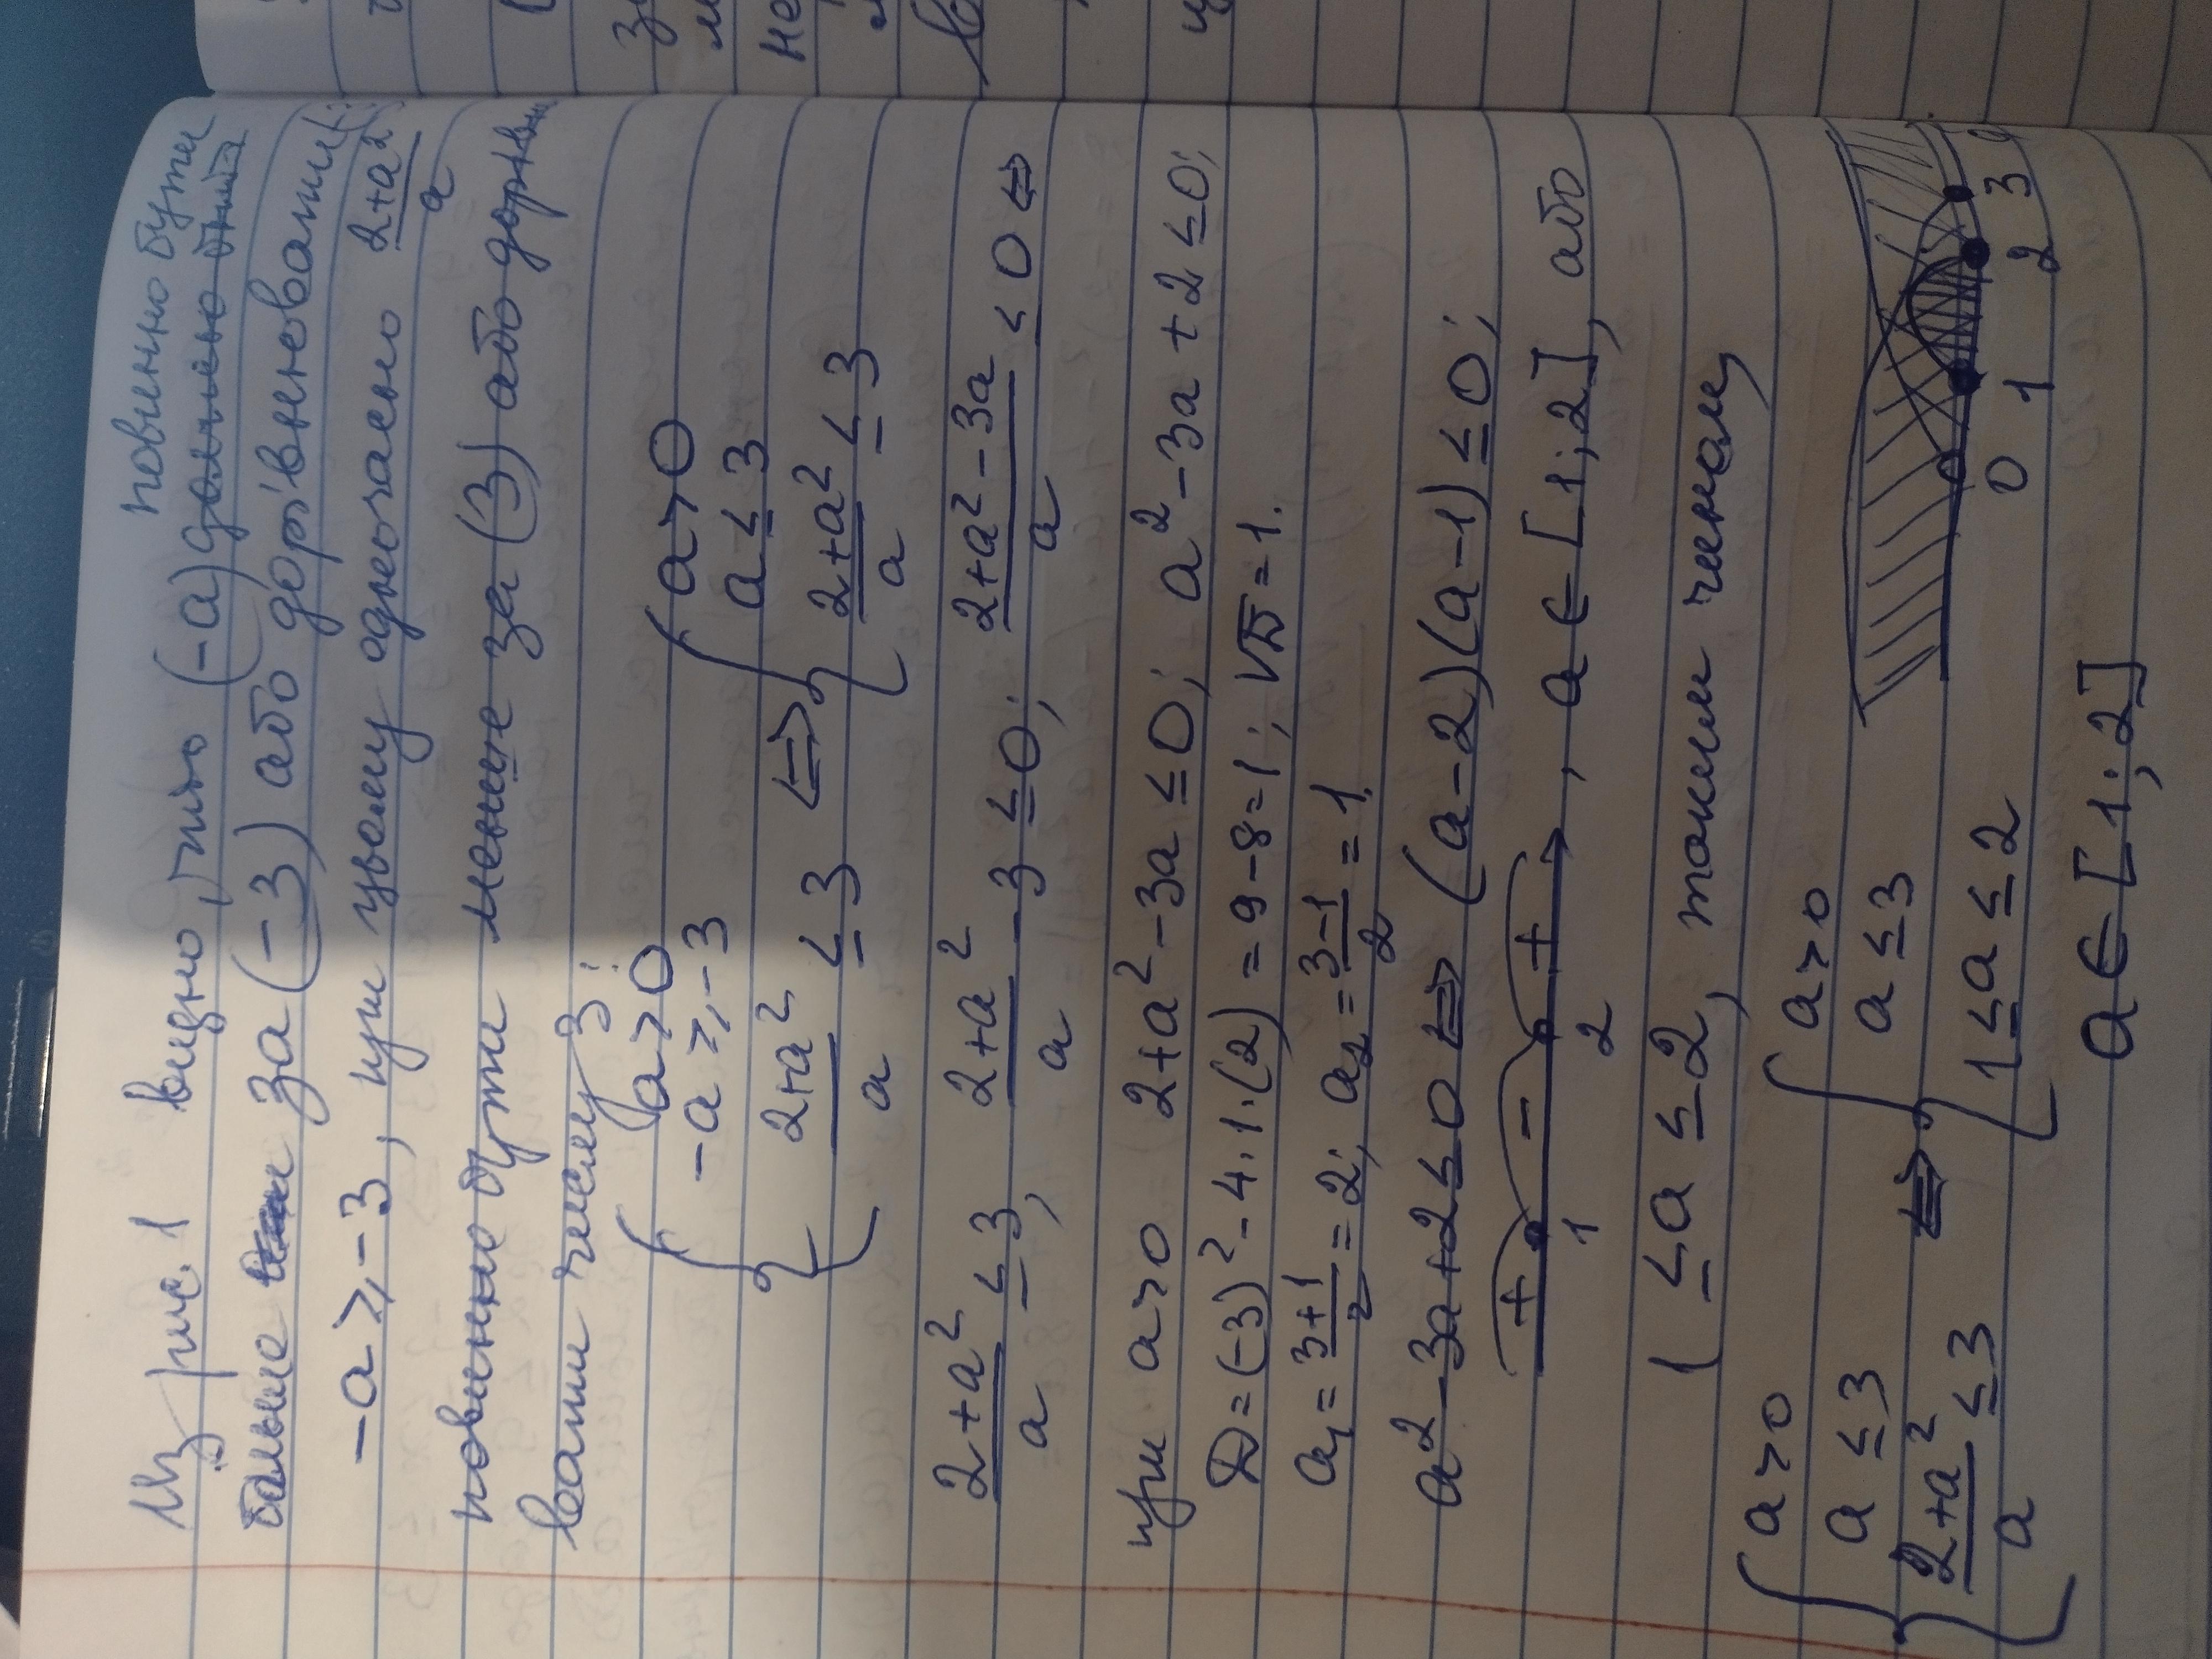 Из рис. 1 видно, что (-a) повинно бути
больше за (-3) або дорівнювати:
-a ≥ -3, при цьому одночасно (2+a²)/a
повинно бути меньше за (3) або дорівню
вати числу 3:
{ a > 0
-a ≥ -3
(2+a²)/a ≤ 3 ⇔ { a > 0
a ≤ 3
(2+a²)/a ≤ 3
(2+a²)/a ≤ 3; (2+a²)/a - 3 ≤ 0; (2+a²-3a)/a ≤ 0 ⇔
при a > 0 2+a²-3a ≤ 0; a²-3a+2 ≤ 0;
D = (-3)² - 4·1·(2) = 9-8 = 1; √D = 1.
a₁ = (3+1)/2 = 2; a₂ = (3-1)/2 = 1.
a²-3a+2 ≤ 0 ⇔ (a-2)(a-1) ≤ 0;
+ 1 - 2 + , a ∈ [1; 2], або
1 ≤ a ≤ 2, таким чином,
{ a > 0
a ≤ 3
(2+a²)/a ≤ 3 ⇔ { a > 0
a ≤ 3
1 ≤ a ≤ 2
0 1 2 3
a ∈ [1; 2]